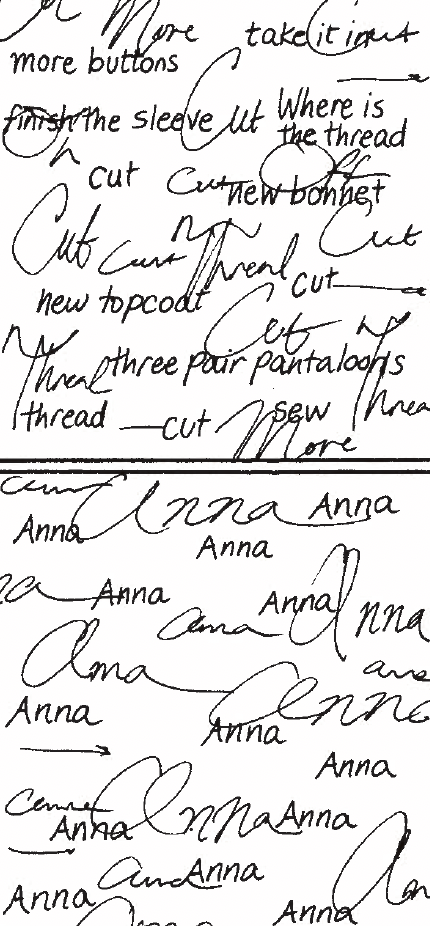 More take it in cut
more buttons
finish the sleeve Cut Where is
the thread
cut Cut Off
new bonnet
Cut Cut Thread Cut
new topcoat cut
Cut
Thread three pair pantaloons
thread cut sew Threa
More
Anna Anna
Anna Anna
na Anna Anna Anna
Anna
Anna
Anna Anna Anna
Anna
Anna Anna Anna
Anna
Anna Anna An
Anna Anna